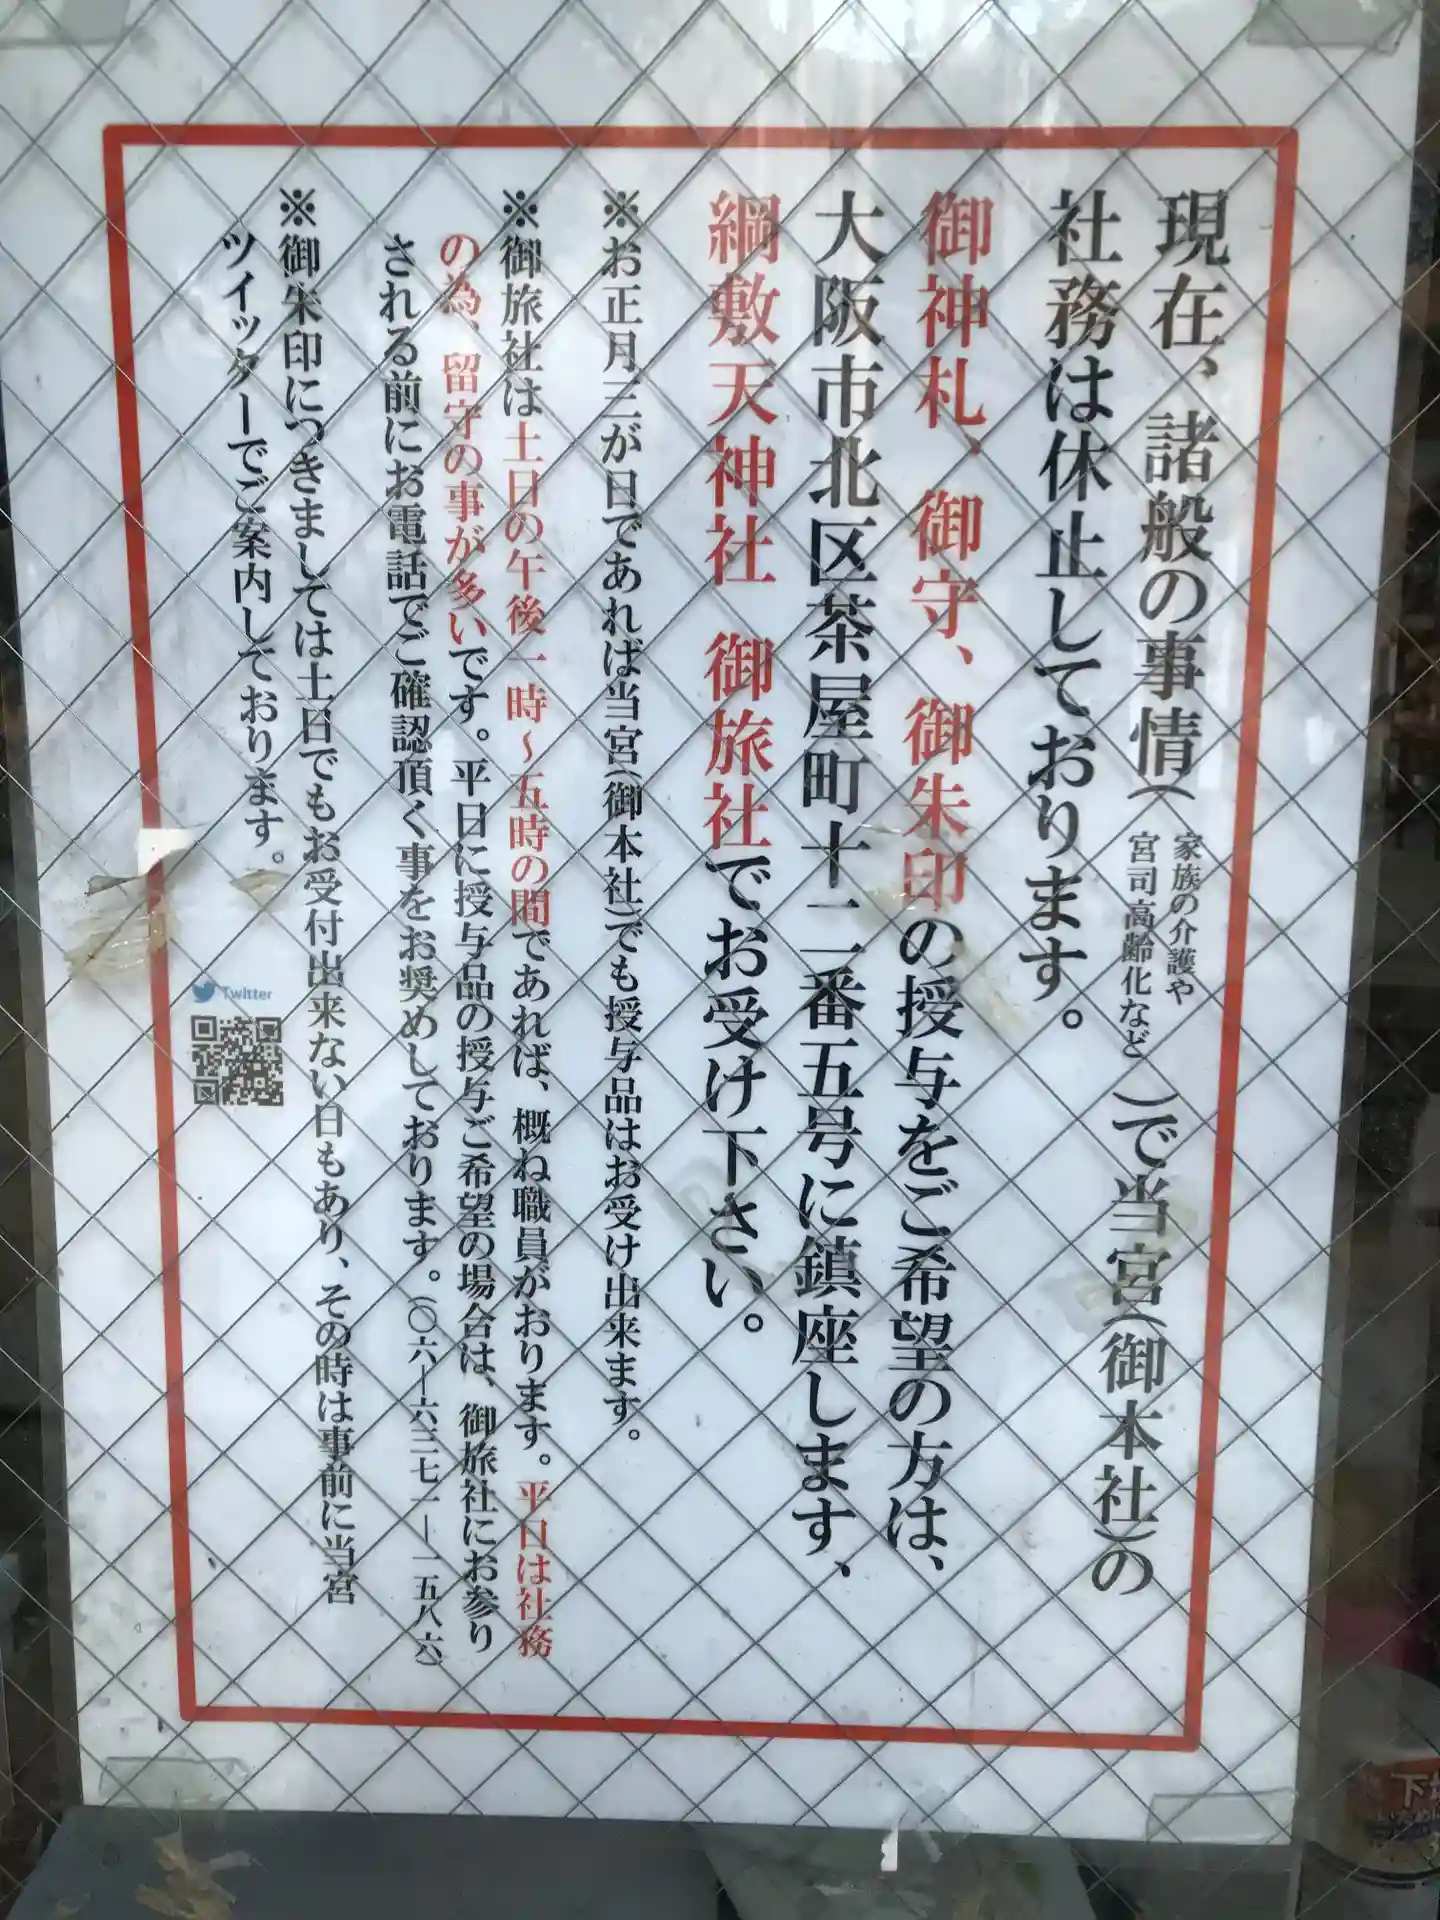 現在、諸般の事情(家族の介護や宮司高齢化など)で当宮(御本社)の
社務は休止しております。
御神札、御守、御朱印の授与をご希望の方は、
大阪市北区茶屋町十二番五号に鎮座します、
綱敷天神社 御旅社でお受け下さい。
※お正月三が日であれば当宮(御本社)でも授与品はお受け出来ます。
※御旅社は土日の午後一時～五時の間であれば、概ね職員がおります。平日は社務
の為、留守の事が多いです。平日に授与品の授与ご希望の場合は、御旅社にお参り
される前にお電話でご確認頂く事をお奨めしております。(〇六ー六三七一ー一五八六)
※御朱印につきましては土日でもお受付出来ない日もあり、その時は事前に当宮
ツイッターでご案内しております。
Twitter